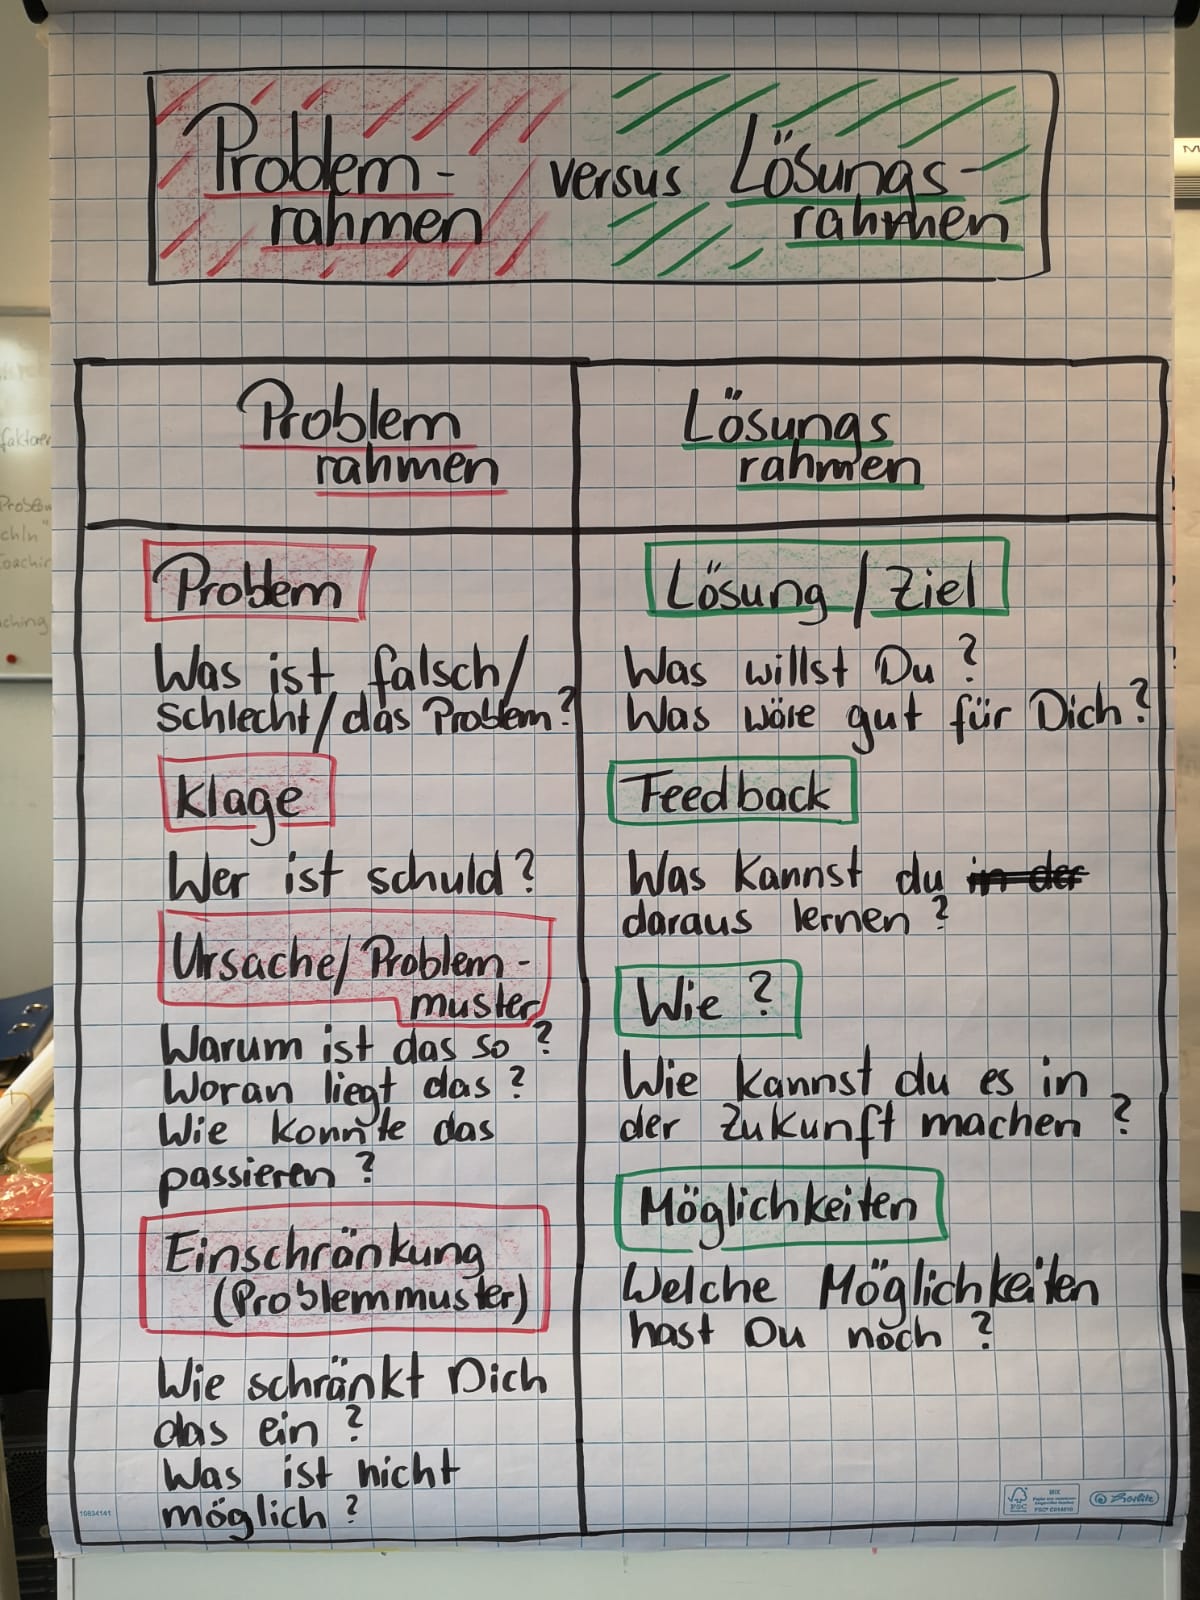 Problem-
rahmen
versus
Lösungs-
rahmen
Problem
rahmen
Lösungs
rahmen
Problem
Was ist falsch/
schlecht/das Problem?
Klage
Wer ist schuld?
Ursache/Problem-
muster
Warum ist das so?
Woran liegt das?
Wie konnte das
passieren?
Einschränkung
(Problemmuster)
Wie schränkt Dich
das ein?
Was ist nicht
möglich?
Lösung/Ziel
Was willst Du?
Was wäre gut für Dich?
Feedback
Was kannst du in der
daraus lernen?
Wie?
Wie kannst du es in
der Zukunft machen?
Möglichkeiten
Welche Möglichkeiten
hast Du noch?
FSC
MIX
herlitz